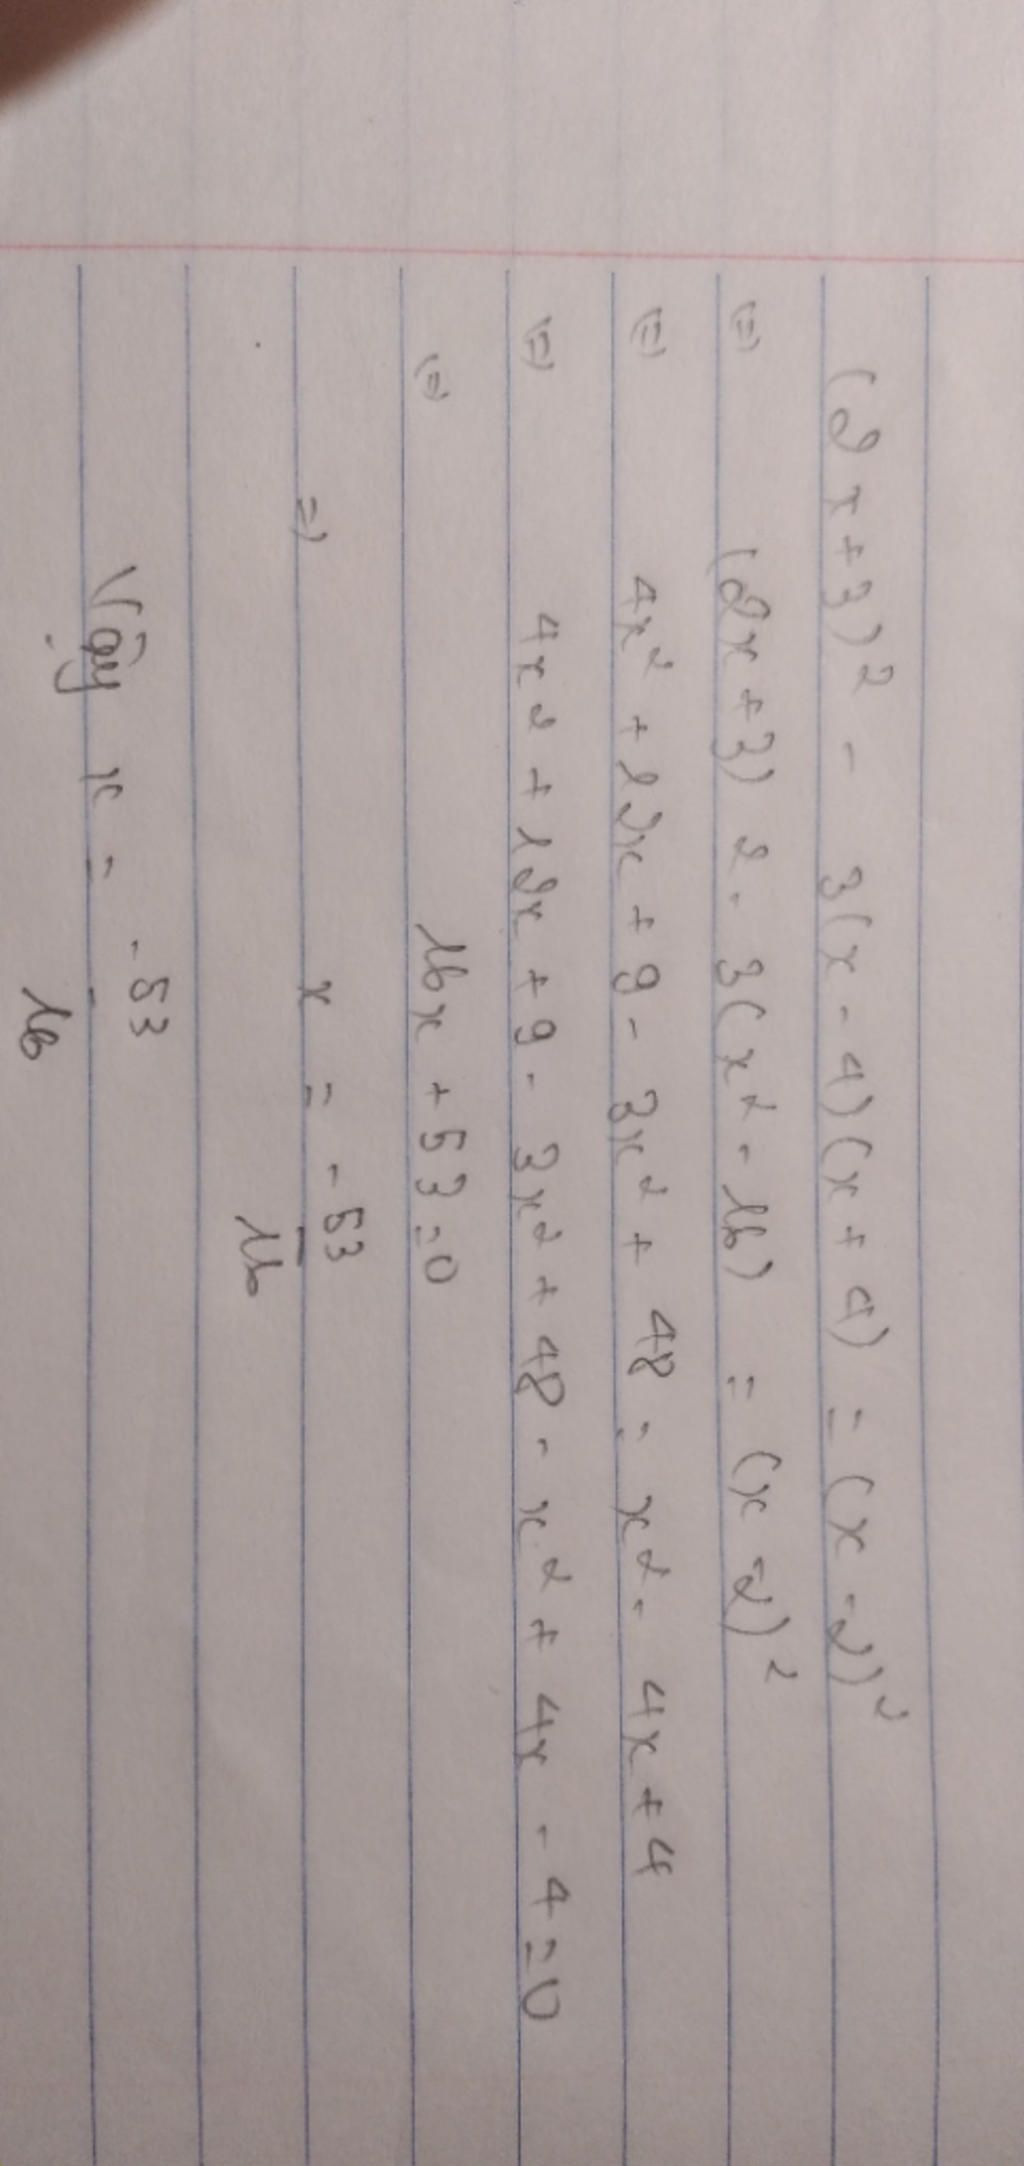 (2x+3)² - 3(x-4)(x+4) = (x-2)²
(=) (2x+3)2 - 3(x²-16) = (x-2)²
(=) 4x² + 12x + 9 - 3x² + 48 = x² - 4x + 4
(=) 4x2 + 12x + 9 - 3x² + 48 - x² + 4x - 4 = 0
(=) 16x + 53 = 0
=) x = -53/16
Vậy x = -53/16